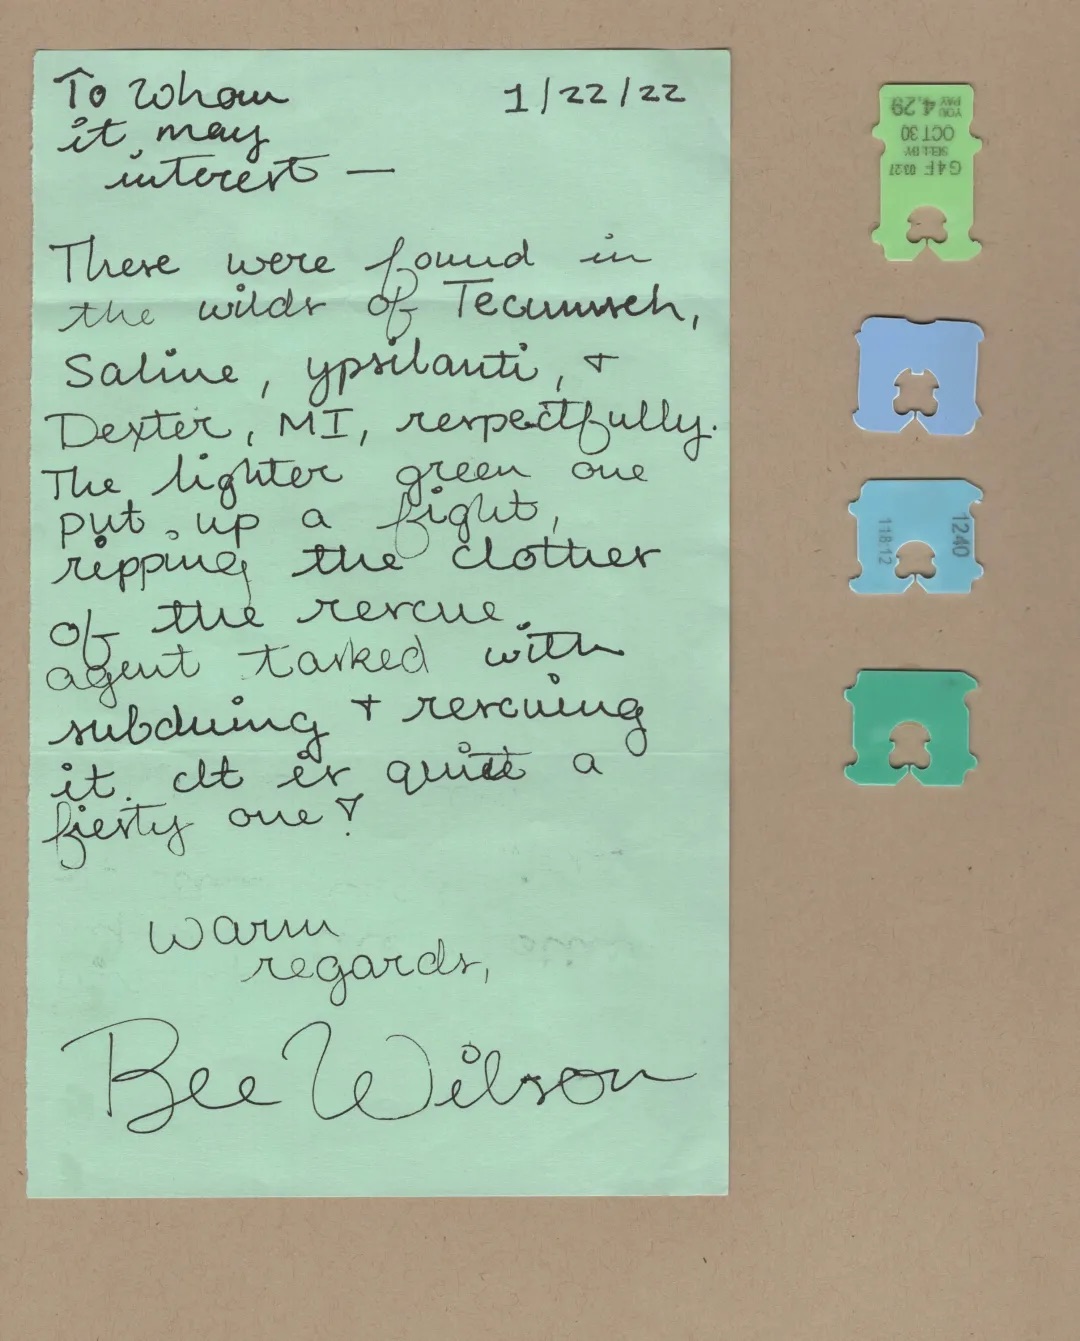 To Whom
1/22/22
it may
interest —
These were found in
the wilds of Tecumseh,
Saline, ypsilanti, +
Dexter, MI, respectfully.
The lighter green one
put up a fight,
ripping the clothes
of the rescue
agent tasked with
subduing + rescuing
it. It is quite a
fiesty one!
Warm
regards,
Bee Wilson
G4F 03:27
SELL BY
OCT 30
YOU PAY 4.29
1240
118:12